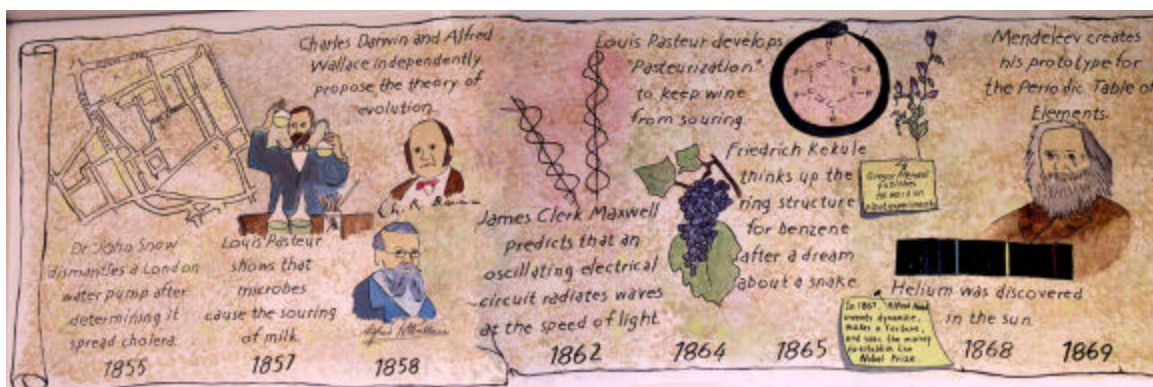 Dr. John Snow
dismantles a London
water pump after
determining it
spread cholera.
1855
Louis Pasteur
shows that
microbes
cause the souring
of milk
1857
Charles Darwin and Alfred
Wallace independently
propose the theory of
evolution
1858
James Clerk Maxwell
predicts that an
oscillating electrical
circuit radiates waves
at the speed of light
1862
Louis Pasteur develops
"Pasteurization"
to keep wine
from souring
1864
Friedrich Kekule
thinks up the
ring structure
for benzene
after a dream
about a snake
1865
Gregor Mendel
publishes
his work on
plant experiments
In 1867, Alfred
invents dynamite,
makes a fortune,
and uses the money
to establish the
Nobel Prize
Helium was discovered
in the sun
1868
Mendeleev creates
his prototype for
the Periodic Table of
Elements.
1869